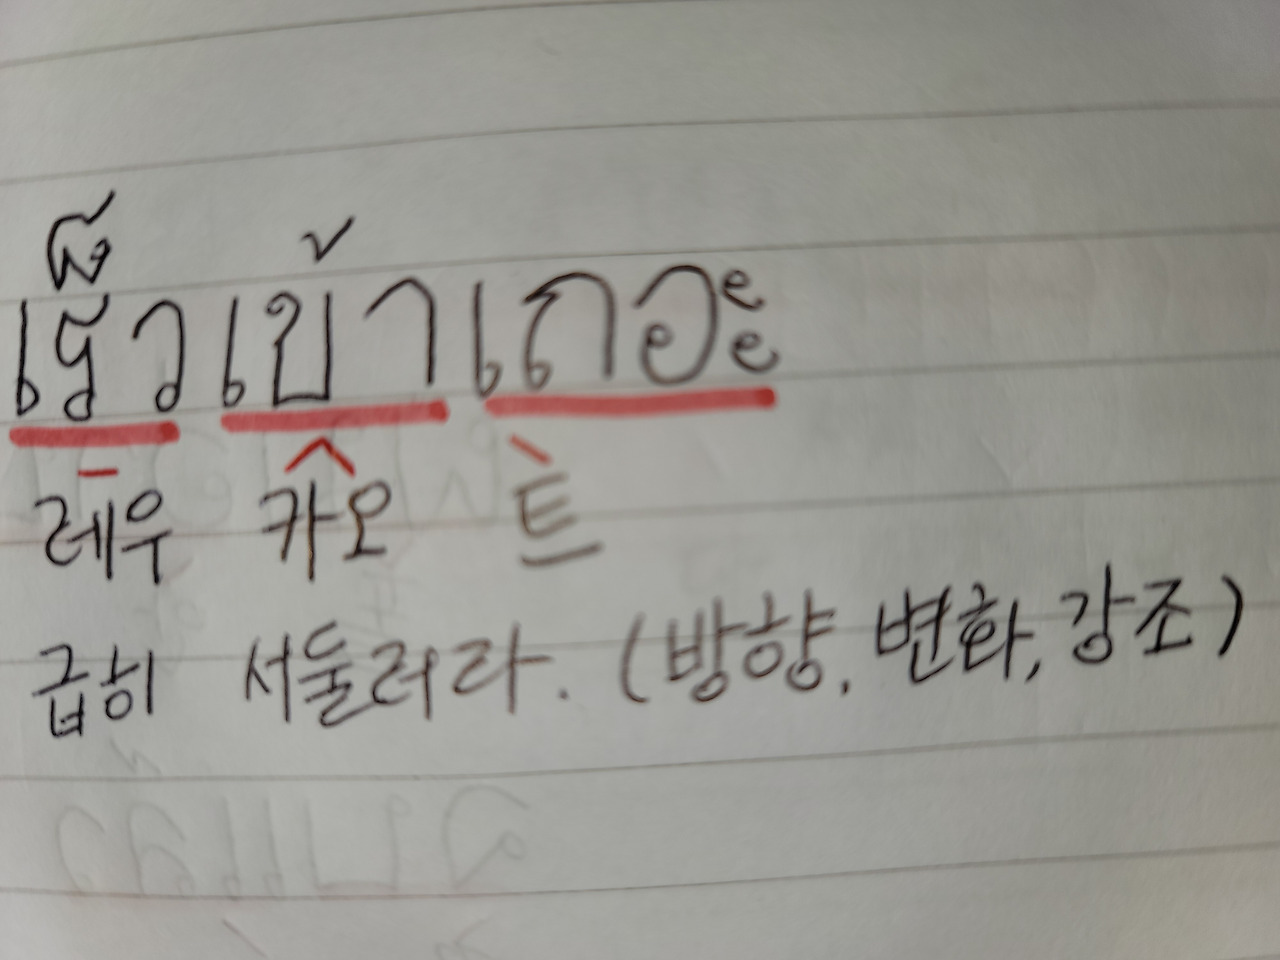 เร็วเข้าเถอะ
레우 카오 트
급히 서둘러라. (방향, 변화, 강조)